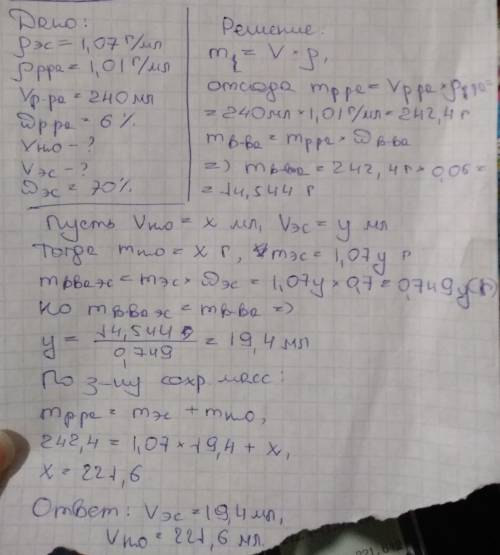 Дано:
ρэс = 1,07 г/мл
ρрра = 1,01 г/мл
Vр-ра = 240 мл
Ꭰрра = 6 %
Vн₂о - ?
Vэс - ?
Ꭰэс = 70 %
Решение:
m = V · ρ,
отсюда mрра = Vрра × ρрра =
= 240 мл × 1,01 г/мл = 242,4 г
mв-ва = mрра × Ꭰв-ва
=) mв-ва = 242,4 г × 0,06 =
= 14,544 г
Пусть Vн₂о = x мл, Vэс = y мл
Тогда mн₂о = x г, mэс = 1,07y г
mвва эс = mэс × Ꭰэс = 1,07y × 0,7 = 0,749y (г)
Но mв-ва эс = mв-ва =)
y = 14,544 / 0,749 = 19,4 мл
По з-ну сохр масс:
mрра = mэс + mн₂о,
242,4 = 1,07 × 19,4 + x,
x = 221,6
Ответ: Vэс = 19,4 мл,
Vн₂о = 221,6 мл